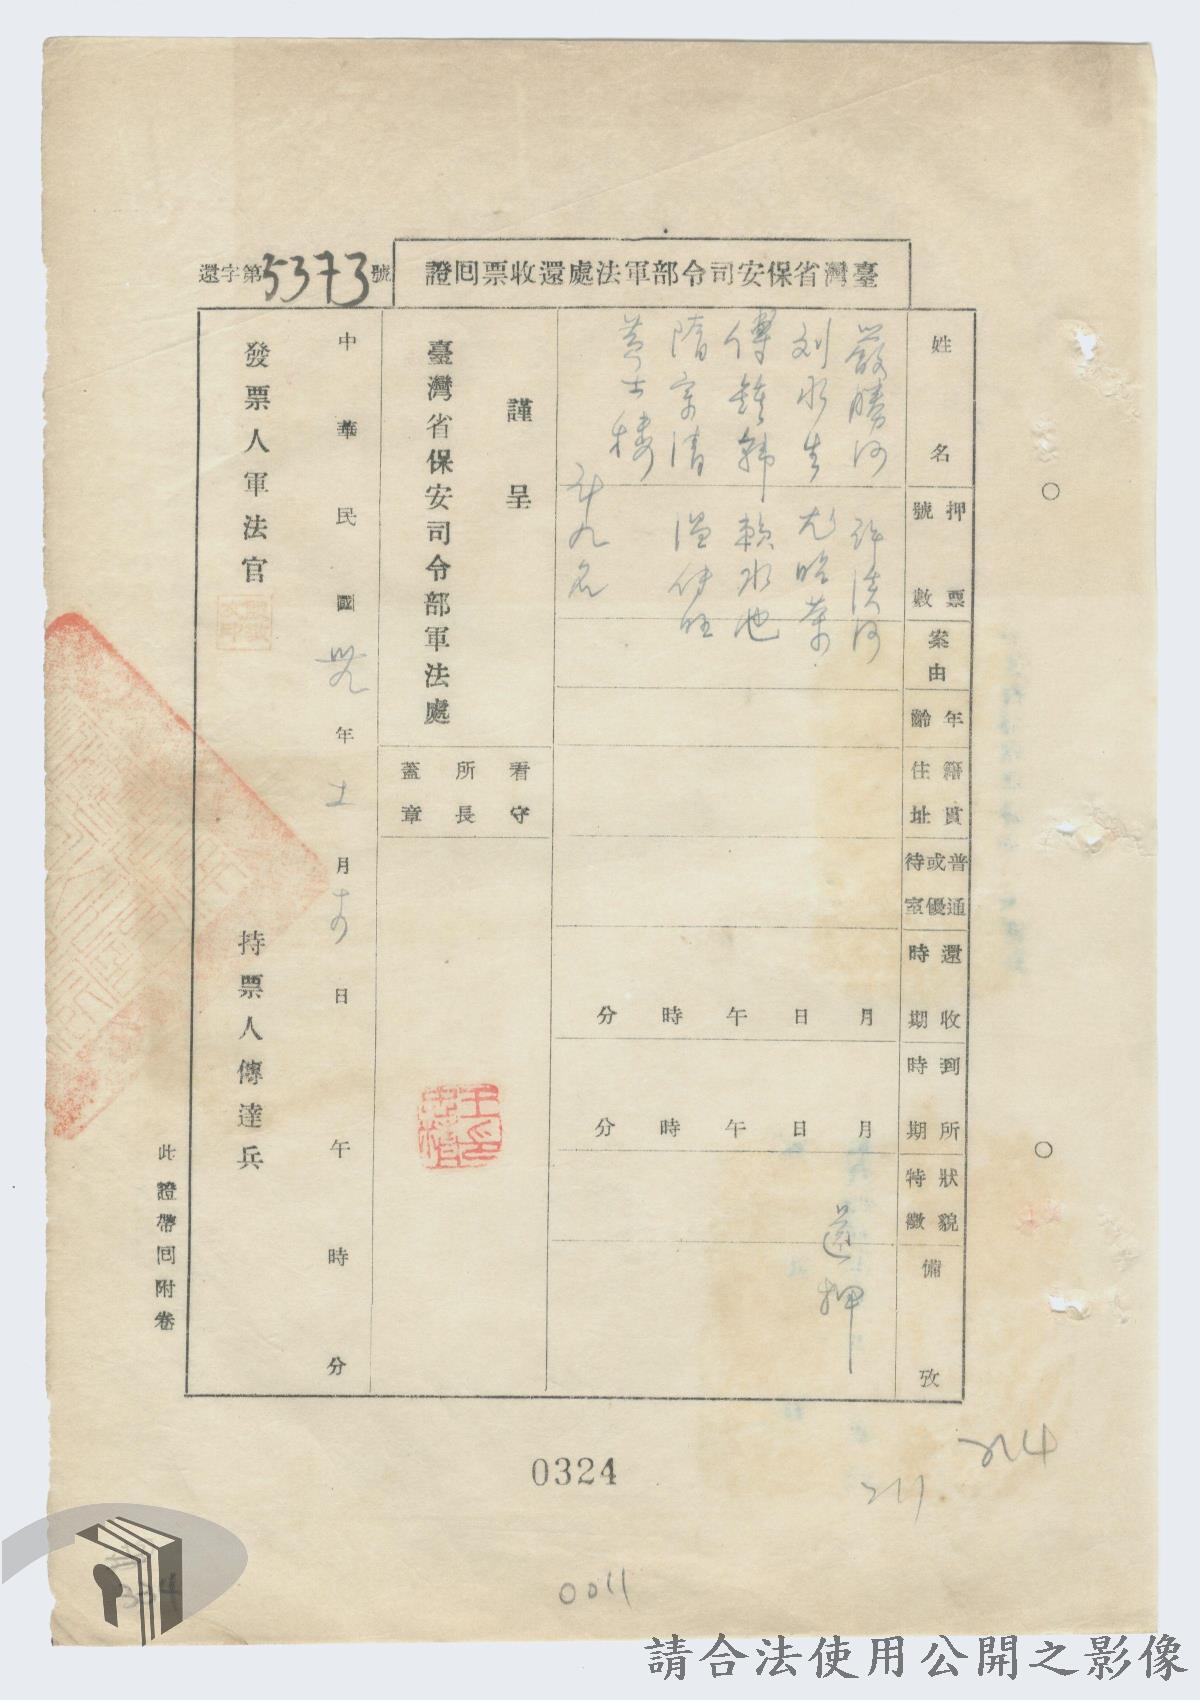 臺灣省保安司令部軍法處還收票回證
還字第5373號
姓名
押票號數
案由
年齡
籍貫住址
普通或優待室
還收時期
到所時期
狀貌特徵
備攷
嚴勝河 許漢河
刘水生 尤昭榮
傅鍾 賴水池
隋宗清 溫伊旺
黃士樓
計九名
月 日 午 時 分
月 日 午 時 分
還押
謹呈
臺灣省保安司令部軍法處
看守所長蓋章
中華民國卅九年 月 日 午 時 分
發票人軍法官
持票人傳達兵
此證帶回附卷
0324
324
211
0011
334
請合法使用公開之影像